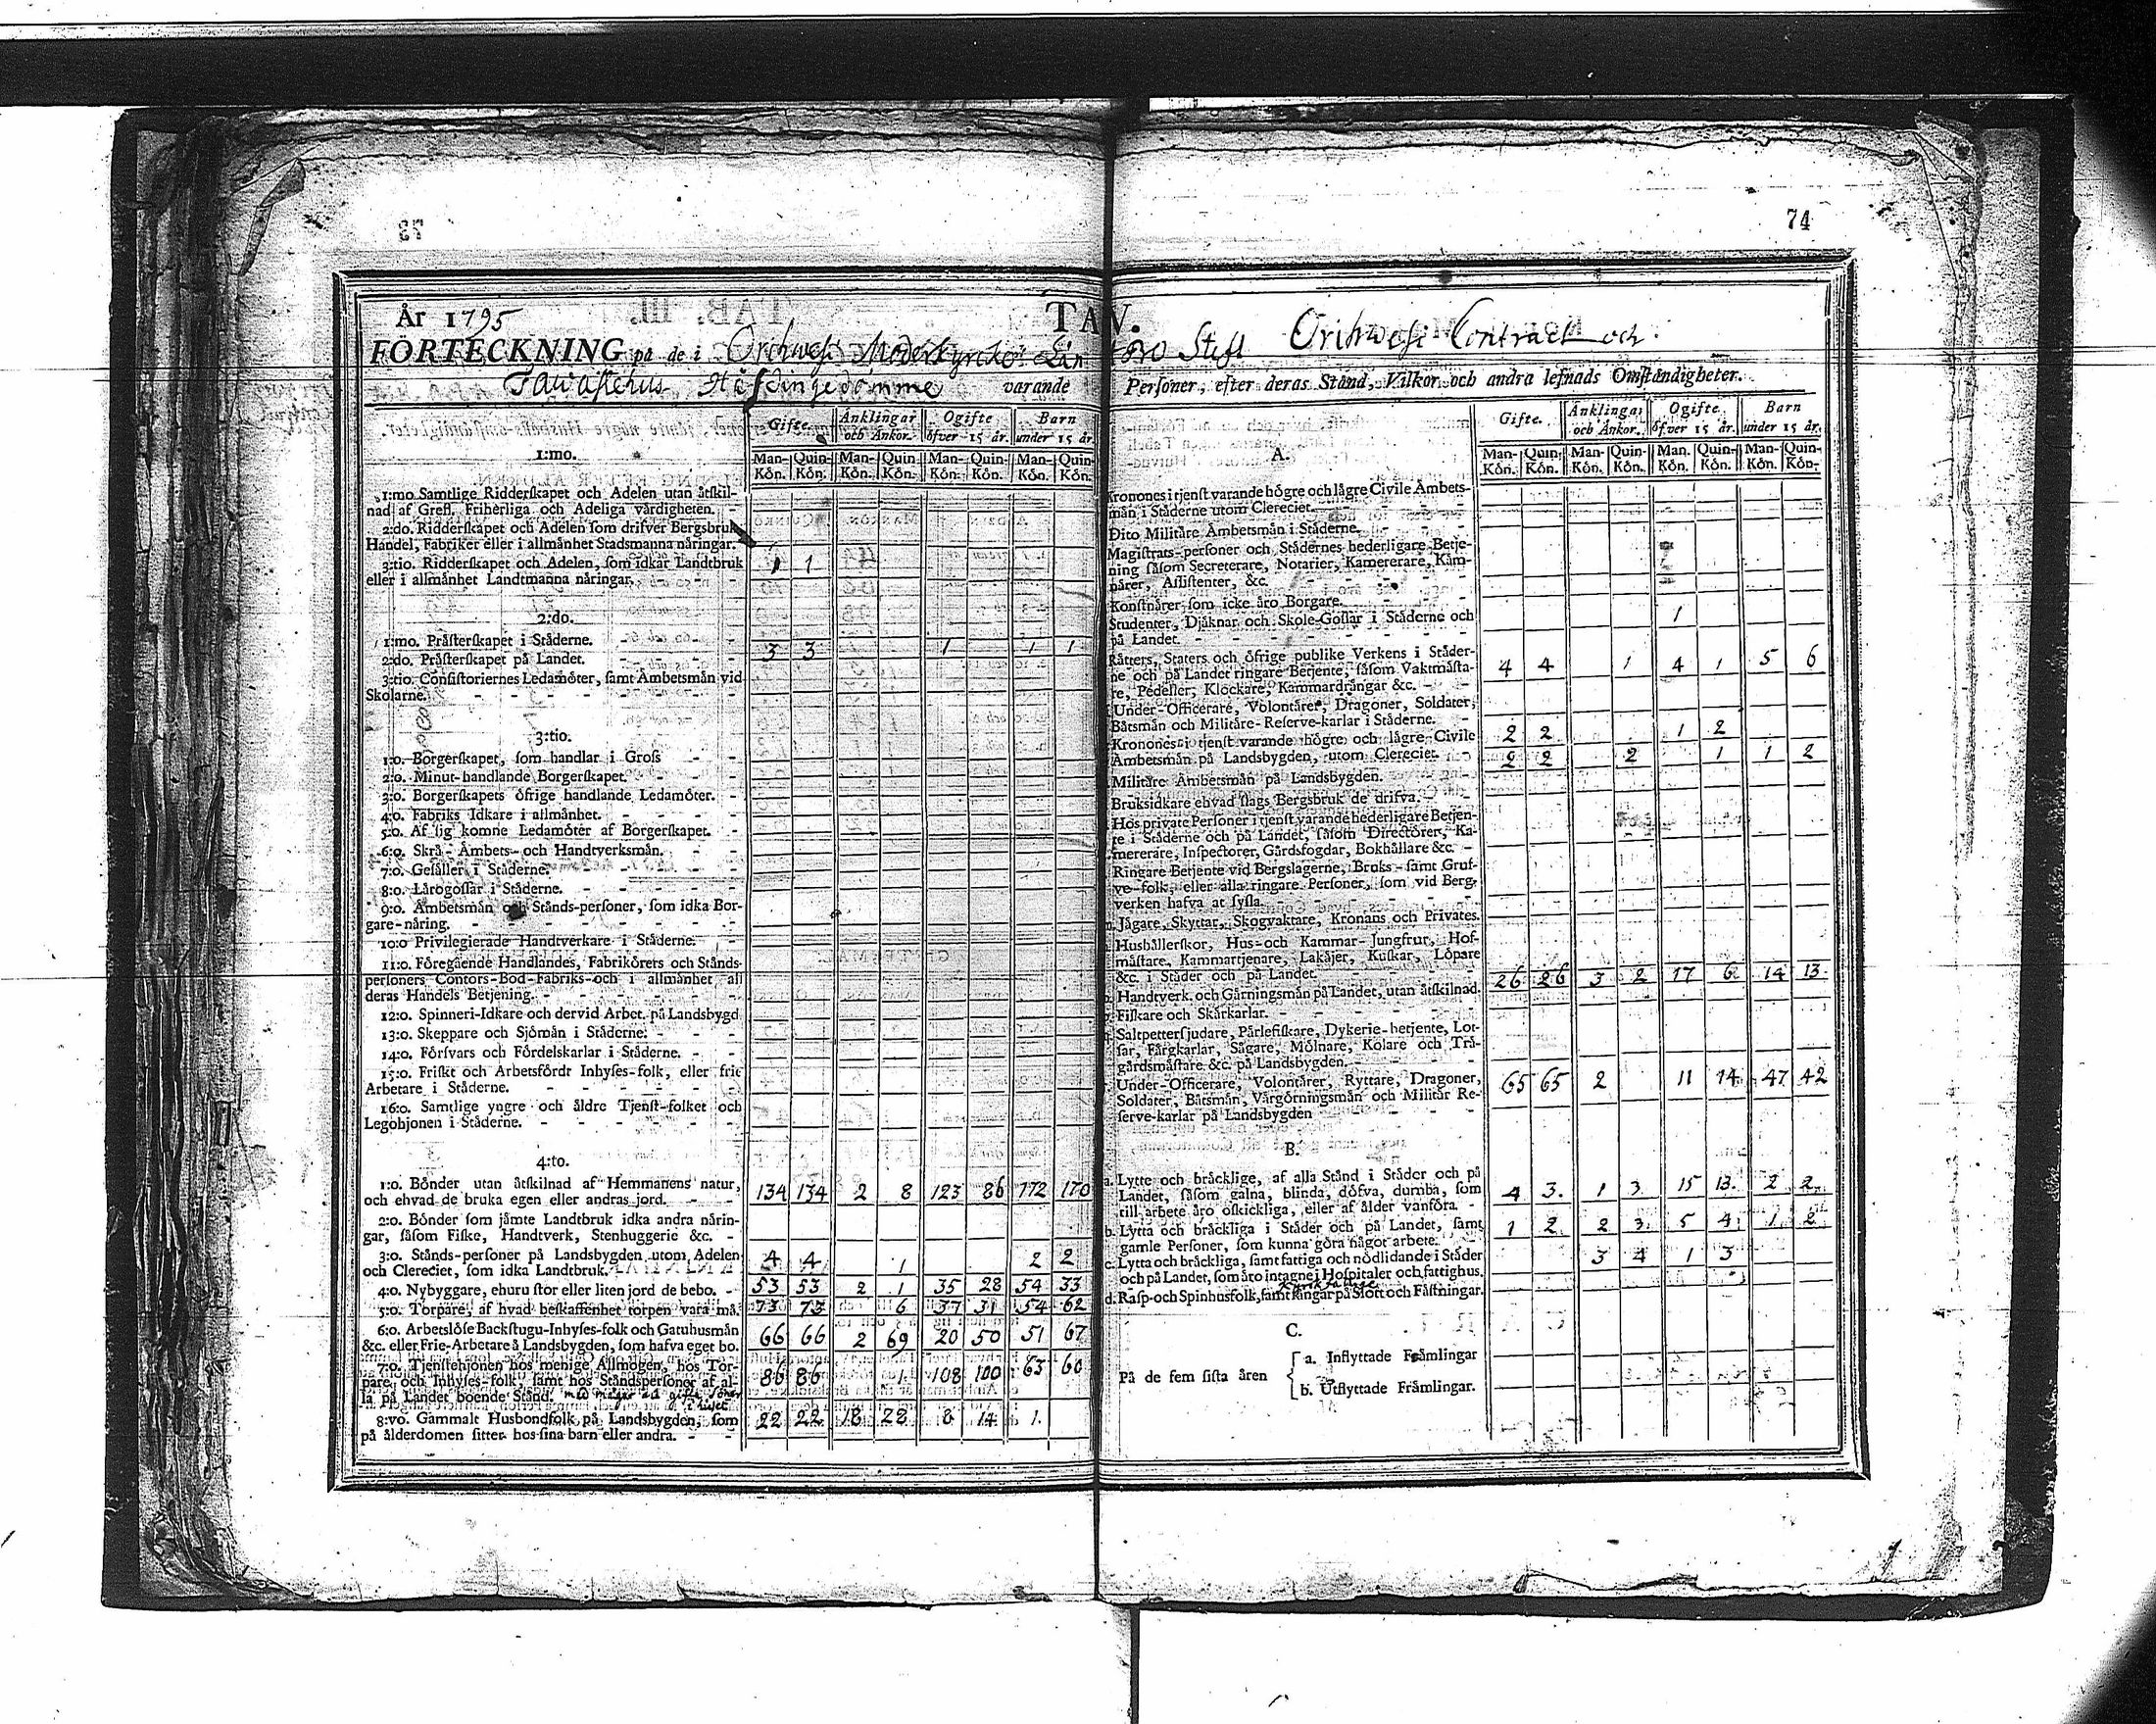 74
TAV.
År 1795
FÖRTECKNING på de i Orihwesi Moderkyrcka Län Åbo Stift Orihwesi Contract och
Tawastehus Höfdingedömme varande Personer, efter deras Stånd, Vilkor och andra lefnads Omständigheter.
Gifte. Änklingar och Änkor. Ogifte öfver 15 år. Barn under 15 år.
Man-Kön. Quin-Kön. Man-Kön. Quin-Kön. Man-Kön. Quin-Kön. Man-Kön. Quin-Kön.
1:mo.
1:mo Samtlige Ridderskapet och Adelen utan åtskil-
nad af Grefl. Friherliga och Adeliga värdigheten. -
2:do. Ridderskapet och Adelen som drifver Bergsbruk
Handel, Fabriker eller i allmånhet Stadsmanna nåringar.
3:tio. Ridderskapet och Adelen, som idkar Landtbruk 1 1
eller i allmånhet Landtmanna nåringar.
2:do.
1:mo. Pråsterskapet i Ståderne.
2:do. Pråsterskapet på Landet. 3 3 1 1 1
3:tio. Consistoriernes Ledamöter, samt Ambetsmån vid
Skolarne.
3:tio.
1:o. Borgerskapet, som handlar i Gross
2:o. Minut-handlande Borgerskapet.
3:o. Borgerskapets öfrige handlande Ledamöter.
4:o. Fabriks Idkare i allmånhet.
5:o. Af sig komne Ledamöter af Borgerskapet.
6:o. Skrå- Åmbets- och Handtverksmån.
7:o. Gesåller i Ståderne.
8:o. Lårogossar i Ståderne.
9:o. Ambetsmån och Stånds-personer, som idka Bor-
gare-nåring.
10:o Privilegierade Handtverkare i Ståderne.
11:o. Föregående Handlandes, Fabrikörers och Stånds-
personers Contors-Bod-Fabriks-och i allmånhet all
deras Handels Betjening.
12:o. Spinneri-Idkare och dervid Arbet. på Landsbygd
13:o. Skeppare och Sjömån i Ståderne.
14:o. Försvars och Fördelskarlar i Ståderne.
15:o. Friskt och Arbetsfördt Inhyses-folk, eller frie
Arbetare i Ståderne.
16:o. Samtlige yngre och åldre Tjenst-folket och
Legohjonen i Ståderne.
4:to.
1:o. Bönder utan åtskilnad af Hemmanens natur,
och ehvad de bruka egen eller andras jord. 134 134 2 8 123 86 172 170
2:o. Bönder som jåmte Landtbruk idka andra nårin-
gar, såsom Fiske, Handtverk, Stenhuggerie &c. -
3:o. Stånds-personer på Landsbygden utom Adelen
och Clereciet, som idka Landtbruk. 4 4 1 2 2
4:o. Nybyggare, ehuru stor eller liten jord de bebo. - 53 53 2 1 35 28 54 33
5:o. Torpare, af hvad beskaffenhet torpen vara må. 73 73 6 37 31 54 62
6:o. Arbetslöse Backstugu-Inhyses-folk och Gatuhusmån
&c. eller Frie-Arbetare å Landsbygden, som hafva eget bo. 66 66 2 69 20 50 51 67
7:o. Tjenstehjonen hos menige Allmogen, hos Tor-
pare och Inhyses-folk, samt hos Ståndspersoner af al- 86 86 1 108 100 63 60
la på Landet boende Stånd. med mågar och gifta söner i huset
8:vo. Gammalt Husbondfolk på Landsbygden, som 22 22 18 28 8 14 1
på ålderdomen sitter hos sina barn eller andra. -
Gifte. Änklingar och Änkor. Ogifte öfver 15 år. Barn under 15 år.
Man-Kön. Quin-Kön. Man-Kön. Quin-Kön. Man. Kön. Quin-Kön. Man-Kön. Quin-Kön.
A.
Kronones i tjenst varande högre och lågre Civile Åmbets-
mån i Ståderne utom Clereciet.
Dito Militåre Åmbetsmån i Ståderne.
Magistrats-personer och Stådernes hederligare Betje-
ning såsom Secreterare, Notarier, Kamererare, Kåm-
nårer, Assistenter, &c.
Konstnårer som icke åro Borgare.
Studenter, Djåknar och Skole-Gossar i Ståderne och 1
på Landet.
Råtters, Staters och öfrige publike Verkens i Ståder-
ne och på Landet ringare Betjente, såsom Vaktmåsta- 4 4 1 4 1 5 6
re, Pedeller, Klockare, Kammardrångar &c.
Under-Officerare, Volontårer, Dragoner, Soldater,
Båtsmån och Militåre-Reserve-karlar i Ståderne.
Kronones i tjenst varande högre och lågre Civile 2 2 1 2
Åmbetsmån på Landsbygden, utom Clereciet. 2 2 2 1 1 2
Militåre Åmbetsmån på Landsbygden.
Bruksidkare ehvad slags Bergsbruk de drifva.
Hos private Personer i tjenst varande hederligare Betjen-
te i Ståderne och på Landet, såsom Directörer, Ka-
mererare, Inspectorer, Gårdsfogdar, Bokhållare &c.
Ringare Betjente vid Bergslagerne, Bruks- samt Gruf-
ve-folk, eller alla ringare Personer, som vid Berg-
verken hafva at syssla
Jågare, Skyttar, Skogvaktare, Kronans och Privates.
Hushållerskor, Hus- och Kammar-Jungfrur, Hof-
måstare, Kammartjenare, Lakåjer, Kuskar, Löpare
&c. i Ståder och på Landet.
Handtverk. och Gårningsmån på Landet, utan åtskilnad. 26 26 3 2 17 6 14 13
Fiskare och Skårkarlar.
Saltpettersjudare, Pårlefiskare, Dykerie-betjente, Lot-
sar, Fårgkarlar, Sågare, Mölnare, Kolare och Trå-
gårdsmåstare &c. på Landsbygden.
Under-Officerare, Volontårer, Ryttare, Dragoner, 65 65 2 11 14 47 42
Soldater, Båtsmån, Vårgörningsmån och Militår Re-
serve-karlar på Landsbygden
B.
a. Lytte och bråcklige, af alla Stånd i Ståder och på
Landet, såsom galna, blinda, döfva, dumba, som 4 3 1 3 15 13 2 2
till arbete åro oskickliga, eller af ålder vanföra.
b. Lytta och bråckliga i Ståder och på Landet, samt 1 2 2 3 5 4 1 2
gamle Personer, som kunna göra något arbete.
c. Lytta och bråckliga, samt fattiga och nödlidande i Ståder 3 4 1 3
och på Landet, som åro intagne i Hospitaler och fattighus.
d. Rasp-och Spinhusfolk, samt fångar på Slott och Fåstningar.
C.
På de fem sista åren
a. Inflyttade Fråmlingar
b. Utflyttade Fråmlingar.